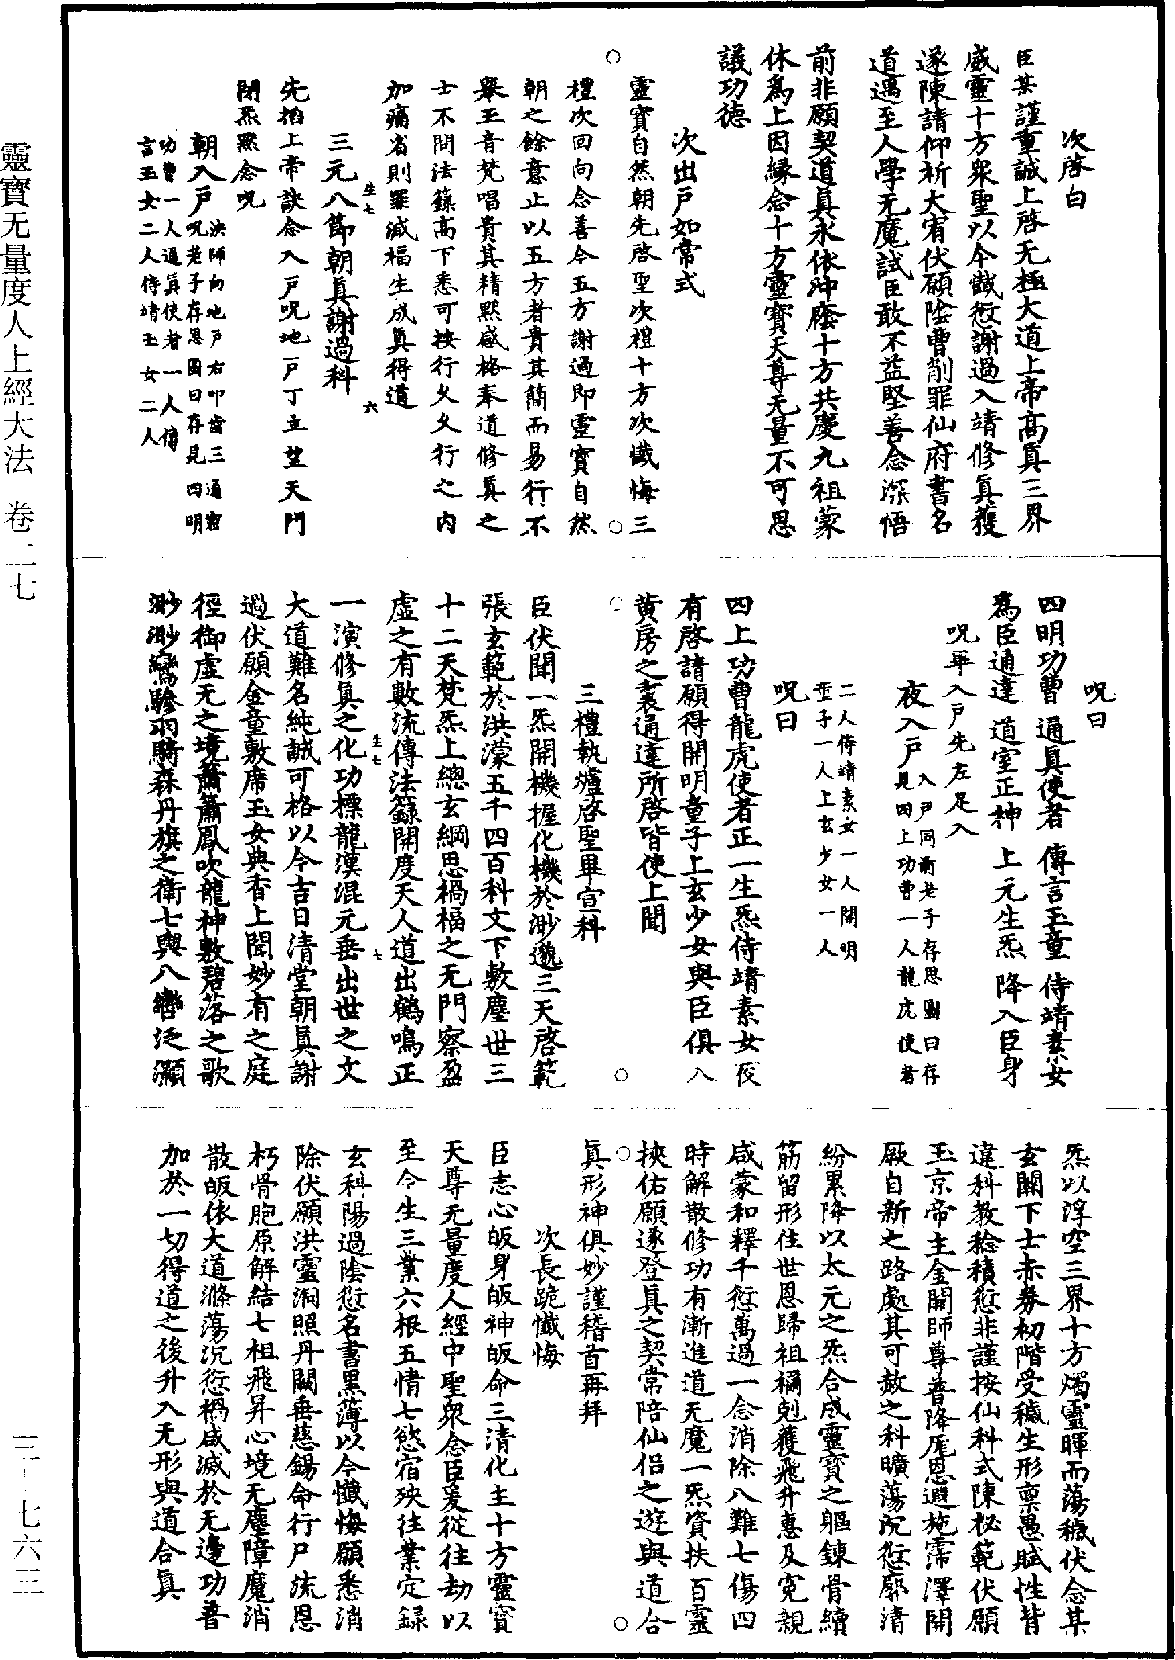 靈寶无量度人上經大法　卷二七
三—七六三
次啓白
臣某謹重誠上啓无極大道上帝高眞三界
威靈十方衆聖以今懺愆謝過入靖修眞獲
遂陳請仰祈大宥伏願陰曹削罪仙府書名
道遇至人學无魔試臣敢不益堅善念深悟
前非願契道眞永依沖廕十方共慶九祖蒙
休爲上因緣念十方靈寶天尊无量不可思
議功德
次出戶如常式
靈寶自然朝先啓聖次禮十方次懺悔三
禮次回向念善今五方謝過即靈寶自然
朝之餘意止以五方者貴其簡而易行不
舉玉音梵唱貴其精默感格奉道修眞之
士不問法籙高下悉可按行久久行之內
加痛省則罪滅福生成眞得道
三元八節朝眞謝過科
先掐上帝訣念入戶呪地戶丁立望天門
閉炁默念呪
朝入戶呪
法師向地戶右叩齒三通密
呪老子存思圖曰存見四明
功曹一人通眞使者一人傳
言玉女二人侍靖玉女二人
呪曰
四明功曹 通眞使者 傳言玉童 侍靖素女
爲臣通達 道室正神 上元生炁 降入臣身
呪畢入戶先左足入
夜入戶
入戶同前老子存思圖曰存
見四上功曹一人龍虎使者
二人侍靖素女一人開明
童子一人上玄少女一人
呪曰
四上功曹龍虎使者正一生炁侍靖素女夜
有啓請願得開明童子上玄少女與臣俱入
黄房之裏通達所啓皆使上聞
三禮執爐啓聖畢宣科
臣伏聞一炁開機握化機於渺邈三天啓範
張玄範於洪濛五千四百科文下敷塵世三
十二天梵炁上總玄綱思禍福之无門察盈
虛之有數流傳法籙開度天人道出鶴鳴正
一演修眞之化功標龍漢混元垂出世之文
大道難名純誠可格以今吉日清堂朝眞謝
過伏願金童敷席玉女典香上聞妙有之庭
徑御虛无之境蕭蕭鳳吹龍神敷碧落之歌
渺渺鸞驂羽騎森丹旗之衛七輿八轡泛灝
炁以浮空三界十方燭靈暉而蕩穢伏念某
玄關下士赤券初階受穢生形稟愚賦性昔
違科教稔積愆非謹按仙科式陳祕範伏願
玉京帝主金闕師尊普降鴻恩遐施霈澤開
厥自新之路處其可赦之科曠蕩沉愆廓清
紛累降以太元之炁合成靈寶之軀鍊骨續
筋留形住世恩歸祖禰剋獲飛升惠及寃親
咸蒙和釋千愆萬過一念消除八難七傷四
時解散修功有漸進道无魔一炁資扶百靈
挾佑願遂登眞之契常陪仙侶之遊與道合
眞形神俱妙謹稽首再拜
次長跪懺悔
臣志心皈身皈神皈命三清化主十方靈寶
天尊无量度人經中聖衆念臣爰從往劫以
至今生三業六根五情七慾宿殃往業定録
玄科陽過陰愆名書黑簿以今懺悔願悉消
除伏願洪靈洞照丹闕垂慈錫命行尸流恩
朽骨胞原解結七祖飛昇心境无塵障魔消
散皈依大道滌蕩沉愆禍咸滅於无邊功普
加於一切得道之後升入无形與道合眞